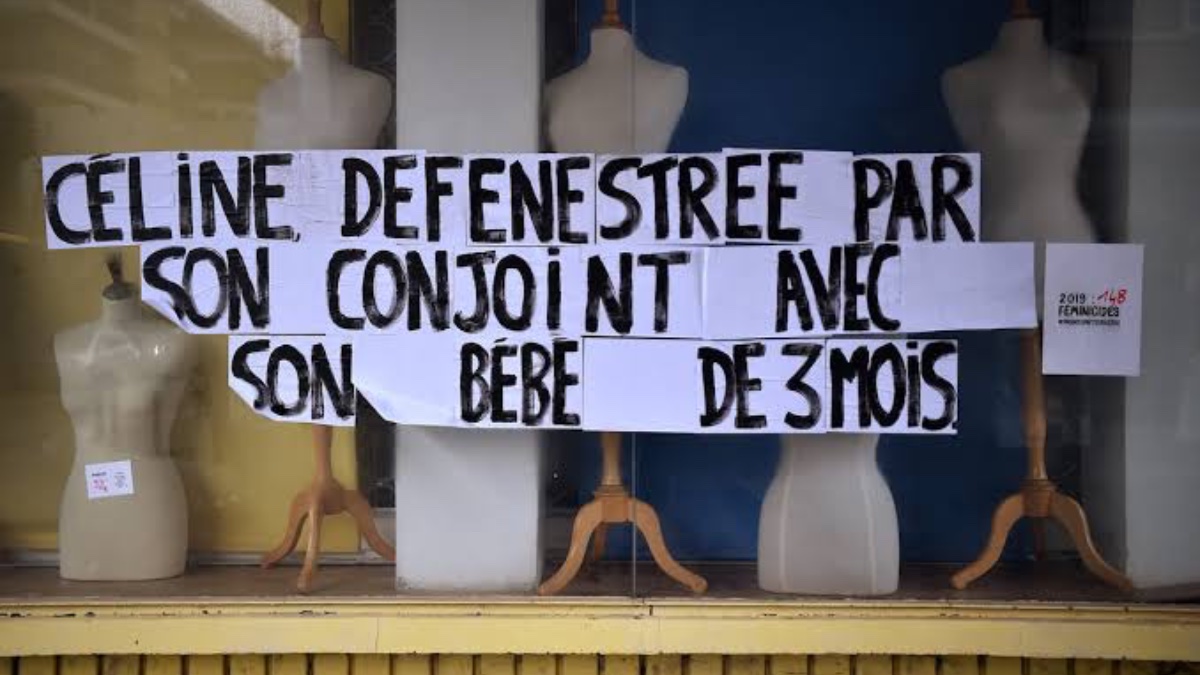 CÉLiNE, DEFENESTREE PAR
SON CONJOiNT AVEC
SON BÉBE DE 3 MOiS.
2019 : 148
FEMINICIDES